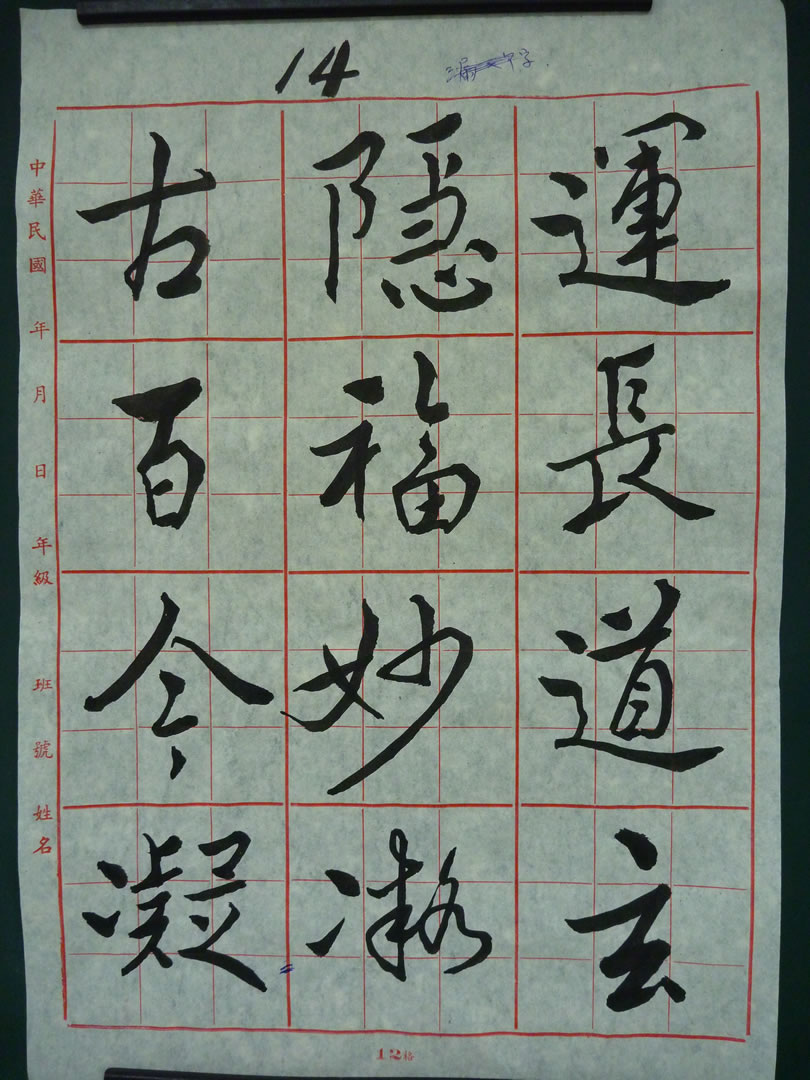 14
運長道玄
隱福妙
古百今凝
中華民國 年 月 日 年級 班 號 姓名
12格